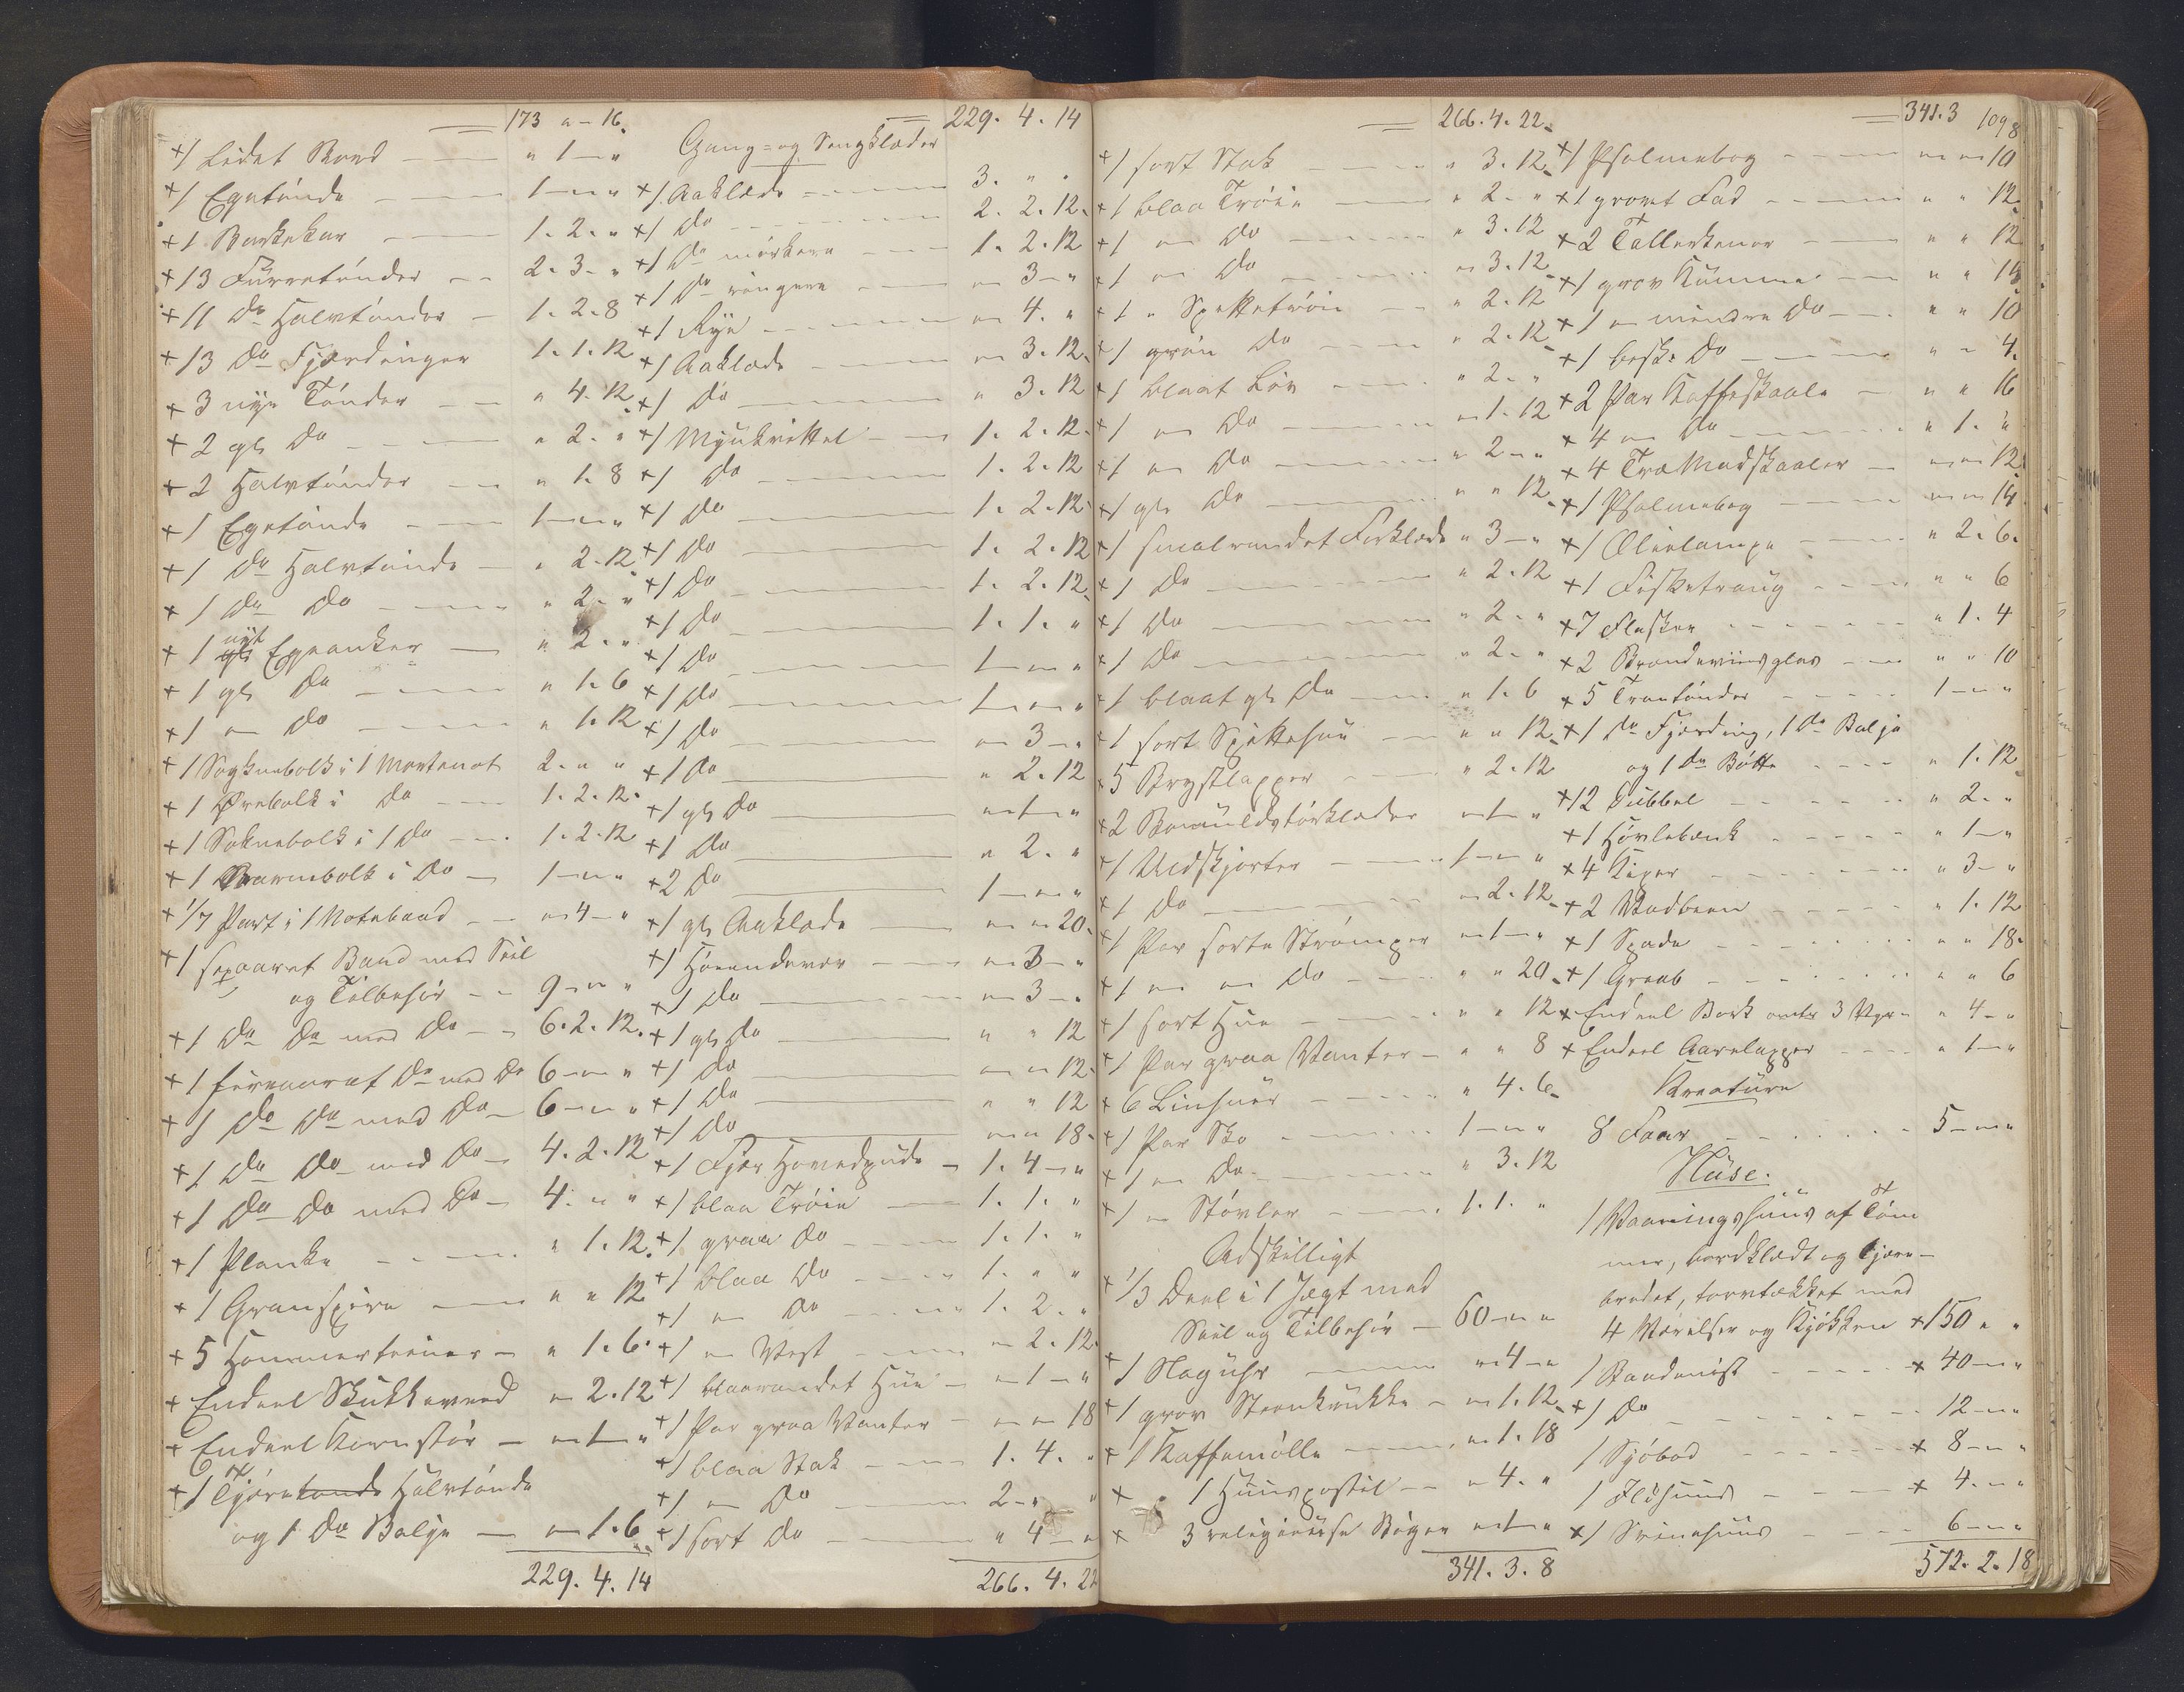 173 " - 16.
+1 Lidet Bord — " 1 — "
+1 Egetönde — 1 — " "
+1 Barkekar — 1. 2. "
+13 Furretönder — 2. 3 - "
+11 Do Halvtönder — 1. 2. 8
+13 Do Fjerdinger 1. 1. 12
+ 3 nye Tönder — " 4. 12
+ 2 gl. Do — " 2. "
+ 2 Halvtönder — " 1. 8
+ 1 Egetönde — 1 — " "
+ 1 Do Halvtönde — " 2. 12
+ 1 Do Do — " 2. "
+ 1 nyt Egeanker — " 2. "
+ 1 gl. Do — " 1. 6
+ 1 " Do — " 1. 12
+ 1 Sogknebolk i 1 Mortenot 2. " "
+ 1 Örebolk i Do — 1. 2. 12.
+ 1 Soknebolk i 1 Do — 1. 2. 12
+ 1 Barmbolk i Do — 1 — " "
+ 1/7 Part i 1 Notebaad — " 4 — "
+1 sexaaret Baad med Seil
og Tilbehör — 9 — " "
+ 1 Do Do med Do — 6. 2. 12.
+ 1 firenaret Do med Do 6 — " "
+ 1 Do Do med Do — 6 — " "
+ 1 Do Do med Do — 4. 2. 12
+ 1 Do Do med Do — 4. " "
+ 1 Planke — " 1. 12.
+ 1 Granspire — " " 12
+ 5 Hommerteiner — " 1. 6.
+ Endeel Stukkeveed " 2. 12
+ Endeel Kornstör — " 1 — "
+ 1 Tjæretönde Halvtönde
og 1 Do Balje — " 1. 6
229. 4. 14
229. 4. 14
Gang- og Sengklæder
+1 Aaklæde — 3. " "
+1 Do — 2. 2. 12.
+1 Do mörkere — 1. 2. 12
+1 Do ringere — " 3 — "
+1 Rye — " 4. "
+1 Aaklæde — " 3. 12.
+1 Do — " 3. 12
+1 Myukvittel — 1. 2. 12.
+1 Do — 1. 2. 12
+1 Do — 1. 2. 12.
+1 Do — 1. 2. 12
+1 Do — 1. 2. 12.
+1 Do — 1. 1. "
+1 Do — 1 — " "
+1 Do — 1 — " "
+1 Do — " 3 — "
+1 Do — " 2. 12
+1 gl. Do — " 1 — "
+1 Do — " 2. "
+2 Do — 1 — " "
+1 gl. Aaklæde — " " 20.
+1 Hovendevor — " 3 — "
+1 Do — " 3 — "
+1 gl. Do — " " 12
+1 Do — " " 12.
+1 Do — " " 12
+1 Do — " " 18.
+1 Fjær Hovedpude — 1. 4 — "
+1 blaa Tröie — 1. 1. "
+1 graa Do — 1. 1. "
+1 blaa Do — 1. " "
+1 " Do — 1. 2. "
+1 " Vest — " 2. 12.
+1 blaarandet Hue — " 1 — "
+1 Par graa Vanter — " " 18
+1 blaa Stak — 1. 4. "
+1 " Do — 2 — " "
+1 sort Do — " 4 — "
266. 4. 22
266. 4. 22.
+1 sort Stak — " 3. 12.
+1 blaa Tröie — " 2. "
+1 " Do — " 3. 12
+1 " Do — " 3. 12.
+1 " Spettetröie — " 2. 12
+1 grön Do — " 2. 12.
+1 blaat Liv — " 2. "
+1 " Do — " 1. 12
+1 " Do — " 2 — "
+1 gl. Do — " " 12.
+1 smalrandet Forklæde " 3 — "
+1 Do — " 2. 12
+1 Do — " 2. "
+1 Do — " 2. "
+1 blaat gl. Do — " 1. 6
+1 sort Spettehue — " " 12.
+5 Brystlapper — " 2. 12
+2 Bomuldstörklæder " 1 — "
+1 Uldskjorter — 1 — " "
+1 Do — " 2. 12.
+1 Par sorte Strömper " 1 — "
+1 " " Do — " " 20.
+1 sort Hue — " " 12
+1 Par graa Vanter — " " 8
+6 Linsner — " 4. 6.
+1 Par Sko — 1 — " "
+1 " Do — " 3. 12
+1 " Stövler — 1. 1. "
Adskilligt
+ 1/3 Deel i 1 Jægt med
Seil og Tilbehör — 60 — " "
+1 Slaguhr — " 4 — "
+1 grov Steenkrukke — " 1. 12.
+1 Kaffemölle — " 1. 18
+ 1 Huuspostil — " 4. "
+ 3 religiøse Böger " 1 — "
341. 3. 8
341. 3 8
109
+1 Psalmebog — " " 10
+1 grovt Fad — " " 12.
+2 Tallerkener — " " 12
+1 grov Kumme — " " 14
+1 " mindre Do — " " 10
+1 besk. Do — " " 4.
+2 Par Kaffeskaale — " " 16
+4 " Do — " 1. "
+4 Træ Madskaaler — " " 12
+1 Psalmebog — " " 14
+1 Ølielampe — " 2. 6.
+1 Fisketraug — " " 6
+7 Flasker — " 1. 4
+2 Brændeviinsglas — " " 10
+5 Trantönder — 1 — " "
+1 Do Fjerding, 1 Do Balje
og 1 Do Bötte — " 1. 12
+12 Dubbel — " 2. "
+1 Hövlebænk — " 1 — "
+4 Kiper — " 3 — "
+2 Vadbeen — " 1. 12
+1 Spade — " " 18.
+1 Greeb — " " 6
+ Endeel Bark omtr 3 Vger — " 4 — "
+ Endeel Aarelapper — " 1 — "
Kreature
8 Faar — 5 — " "
Huse:
1 Vaaningshuus af Töm
mer, bordklædt og tjære-
bredet, torvtækket med
4 Værelser og Kjökken + 150 " "
1 Baadnöst — + 40 — "
+1 Do — 12 — "
1 Sjöbod — + 8 — "
1 Ildhuus — + 4. — "
+1 Svinehuus — 6 — "
572. 2. 18